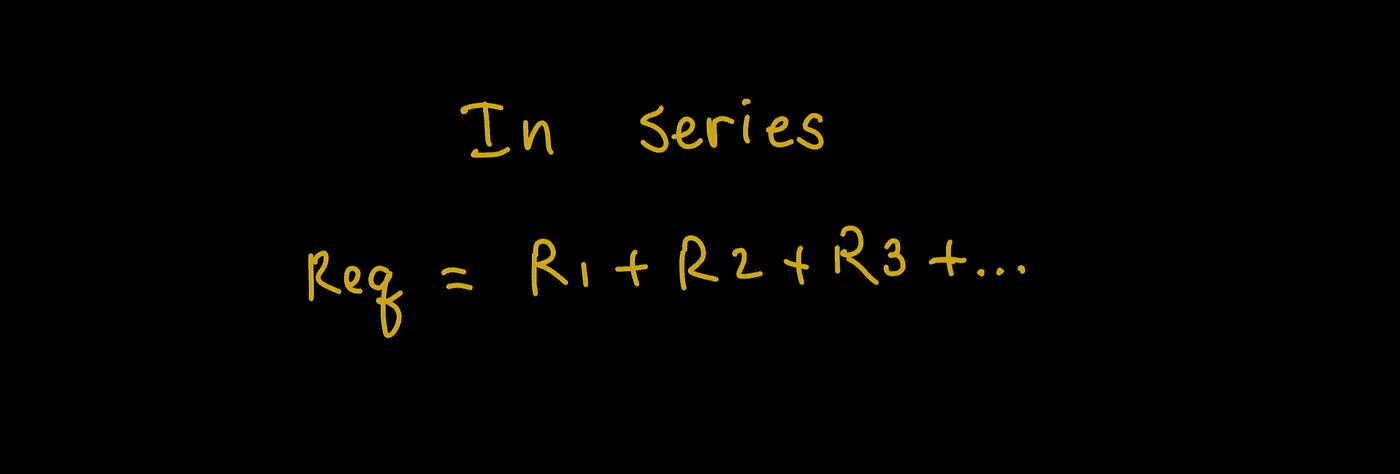 In series
Req = R1 + R2 + R3 + ...